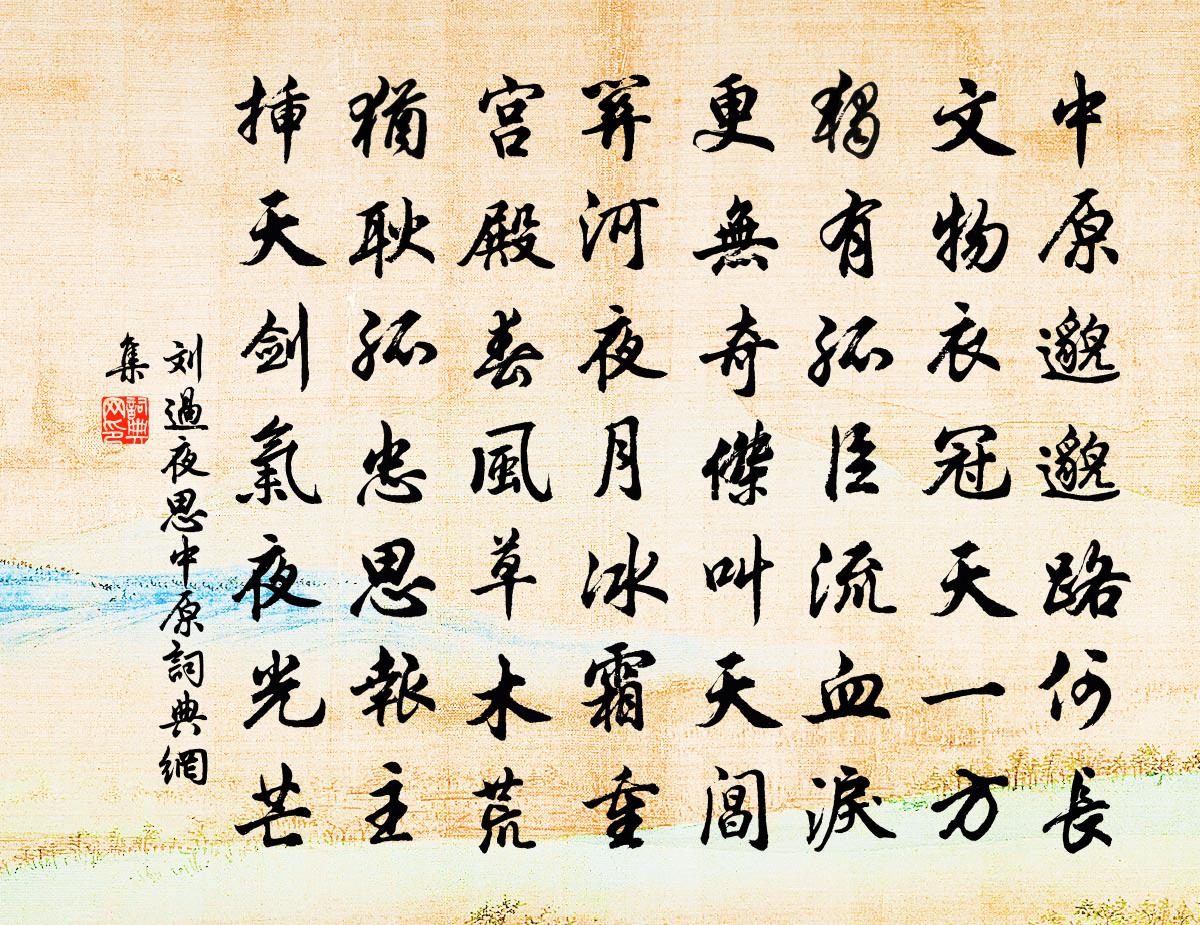 中原邈邈路何長
文物衣冠天一方
獨有孤臣流血淚
更無奇傑叫天閶
關河夜月冰霜重
宮殿春風草木荒
猶耿孤忠思報主
挿天劍氣夜光芒
刘過夜思中原詞典網
集
詞典
网印